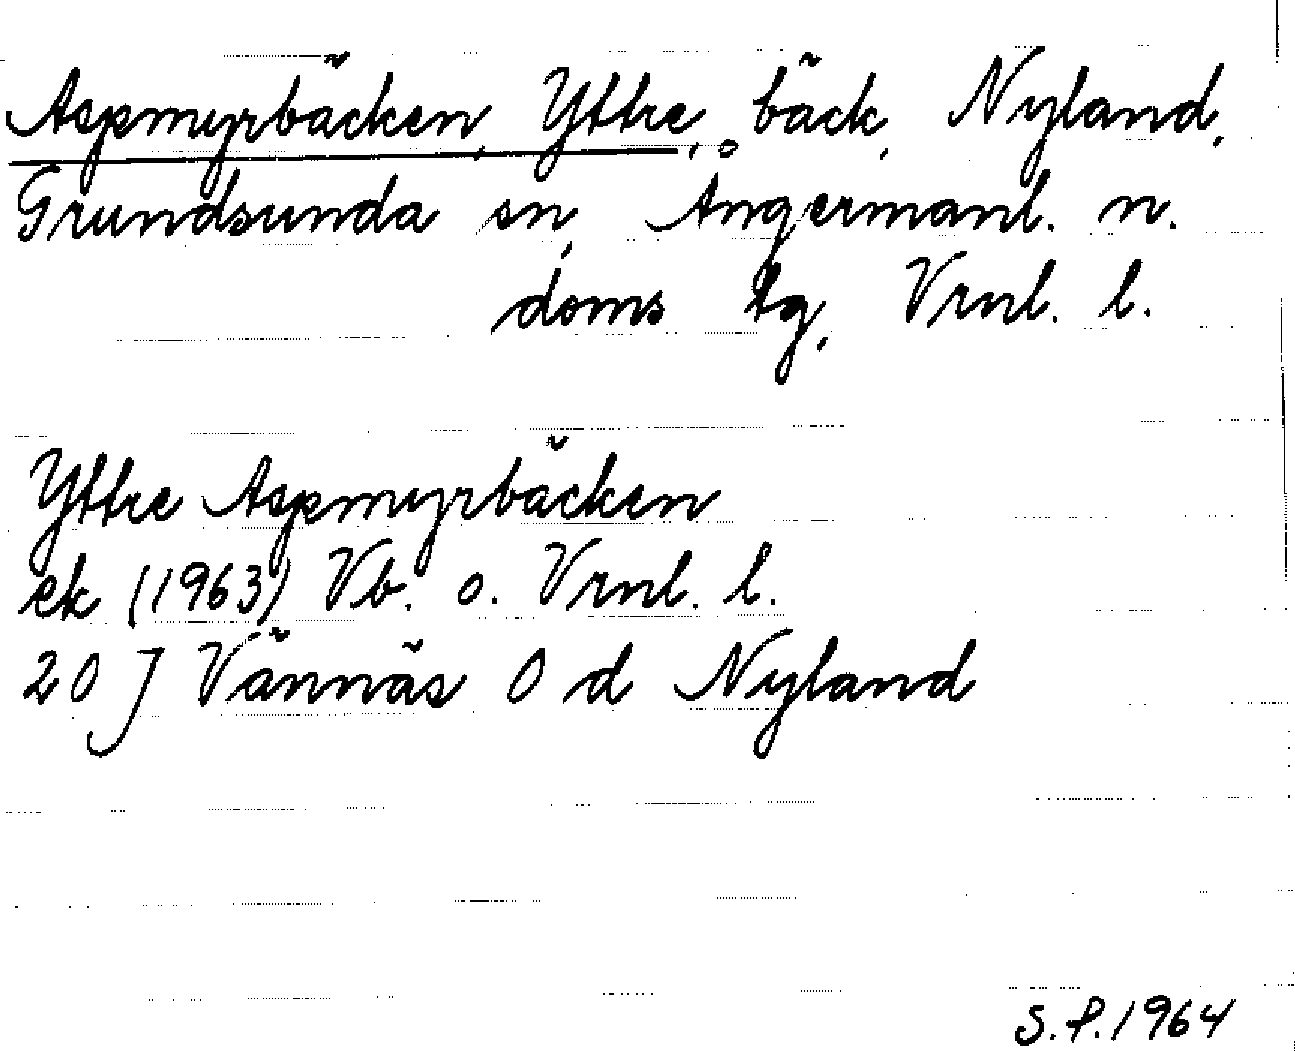 Aspmyrbäcken, Yttre, bäck, Nyland,
Grundsunda sn, Ångermanl. n.
doms tg, Vrnl. l.
Yttre Aspmyrbäcken
ek (1963) Vb. o. Vrnl. l.
20 J Vännäs 0 d Nyland
S.P. 1964